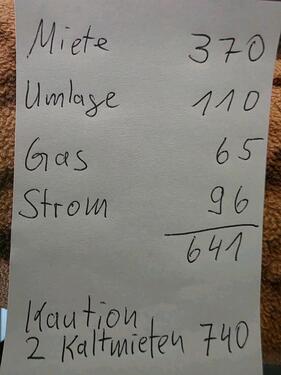 Miete 370
Umlage 110
Gas 65
Strom 96
641
Kaution
2 Kaltmieten 740